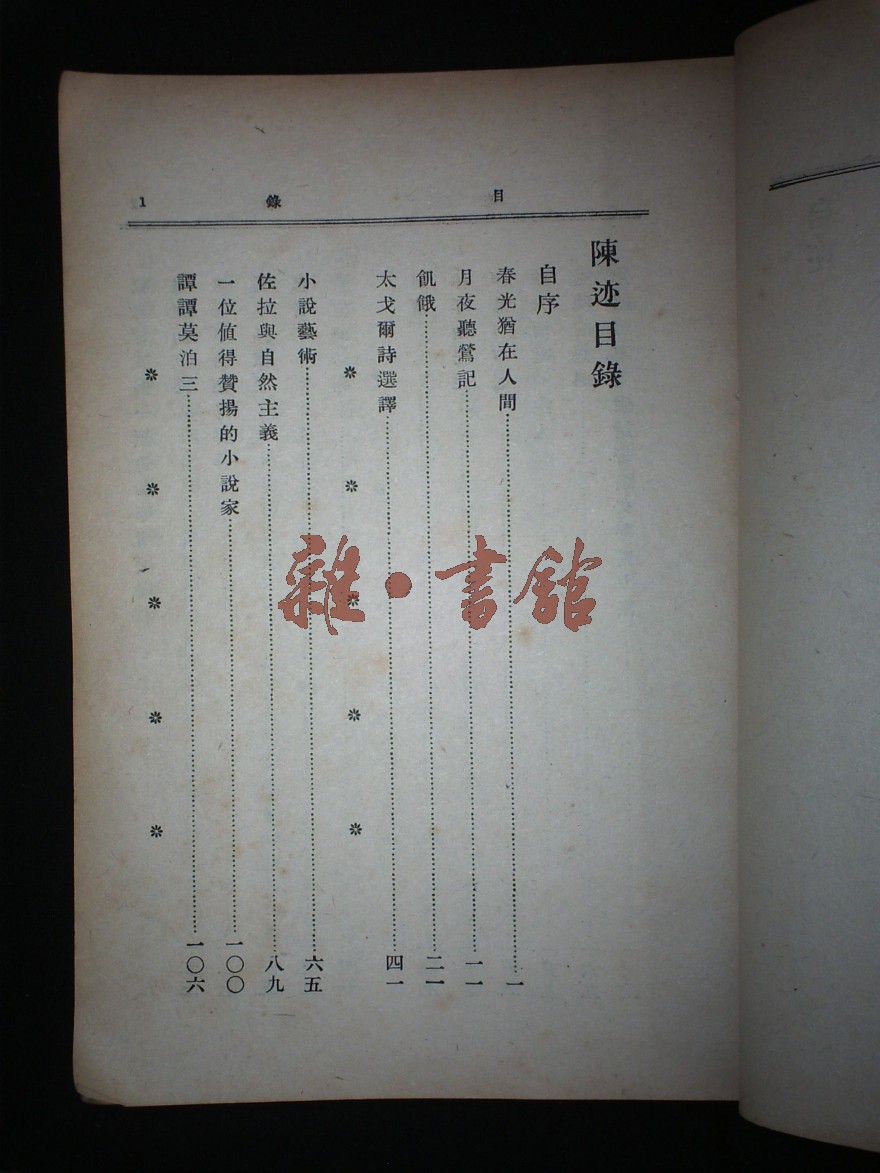 目錄 1
陳迹目錄
自序
春光猶在人間……一
月夜聽鶯記……一一
飢餓……二一
太戈爾詩選譯……四一
＊＊＊＊＊
小說藝術……六五
佐拉與自然主義……八九
一位值得贊揚的小說家……一〇〇
譚譚莫泊三……一〇六
＊＊＊＊＊
雜·書館